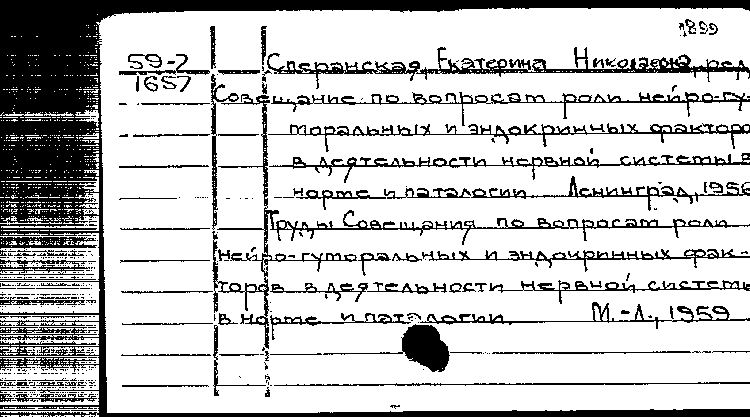 1899
59-7 Сперанская, Екатерина Николаевна, ред.
1657
Совещание по вопросам роли нейро-гу-
моральных и эндокринных факторо
в деятельности нервной системы в
норме и паталогии. Ленинград, 1956
Труды Совещания по вопросам роли
нейро-гуморальных и эндокринных фак-
торов в деятельности нервной системы
в норме и паталогии. М.-Л., 1959